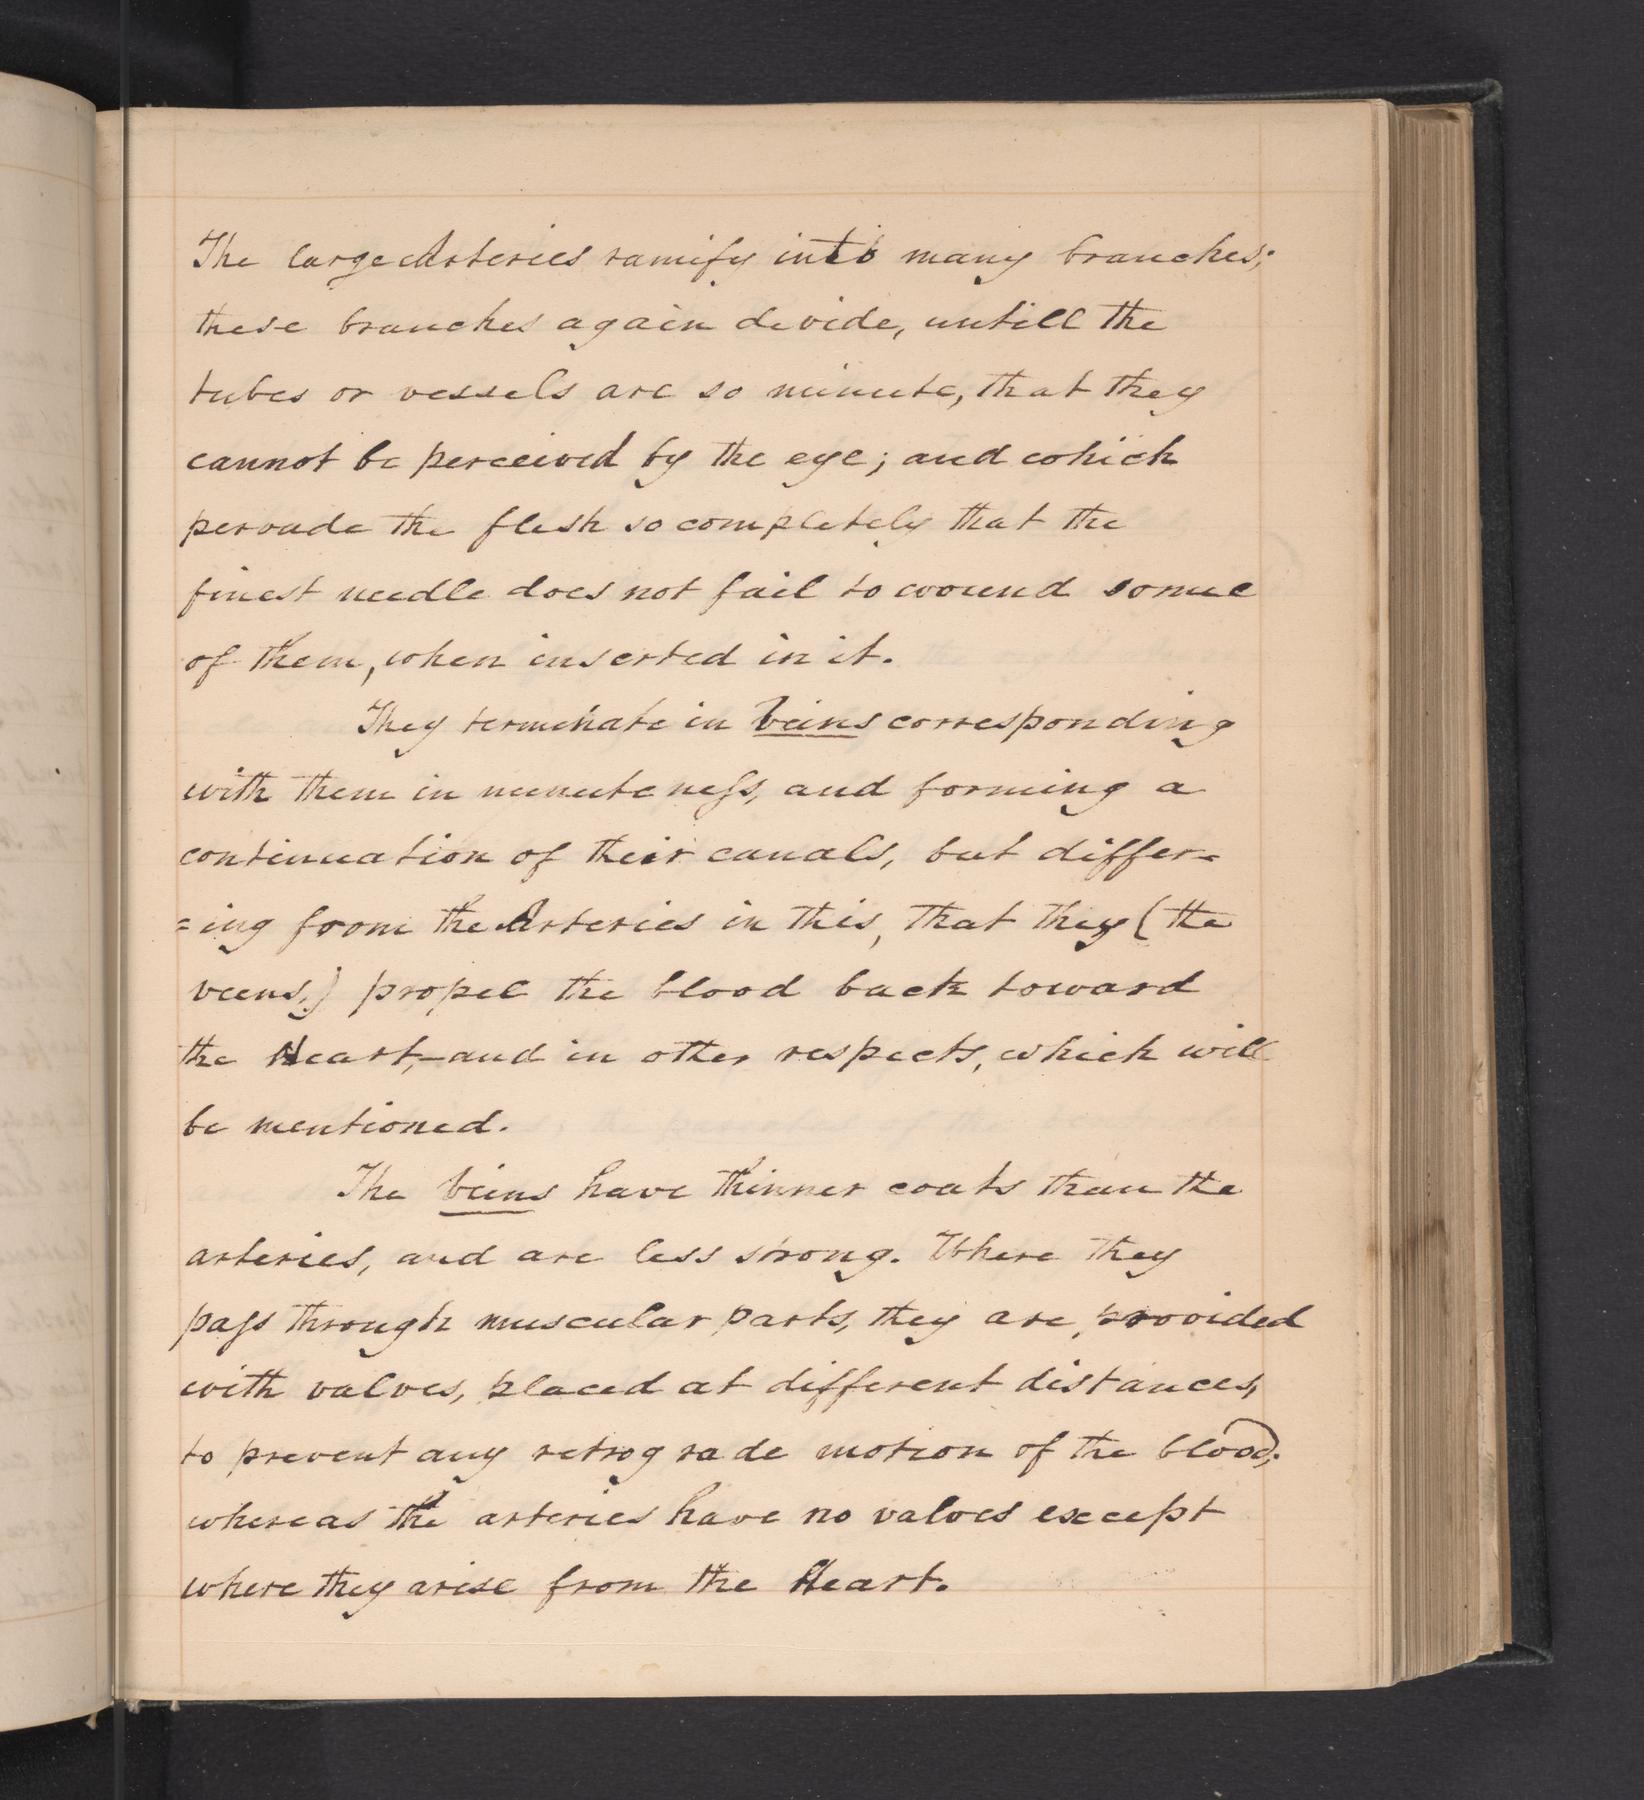 The large Arteries ramify into many branches;
these branches again divide, untill the
tubes or vessels are so minute, that they
cannot be perceived by the eye; and which
pervade the flesh so completely that the
finest needle does not fail to wound some
of them, when inserted in it.
They terminate in Veins corresponding
with them in minuteness, and forming a
continuation of their canals, but differ=
=ing from the Arteries in this, that they (the
veins,) propel the blood back toward
the Heart,—and in other respects, which will
be mentioned.
The Veins have thinner coats than the
arteries, and are less strong. Where they
pass through muscular parts, they are provided
with valves, placed at different distances,
to prevent any retrograde motion of the blood;
whereas the arteries have no valves except
where they arise from the Heart.